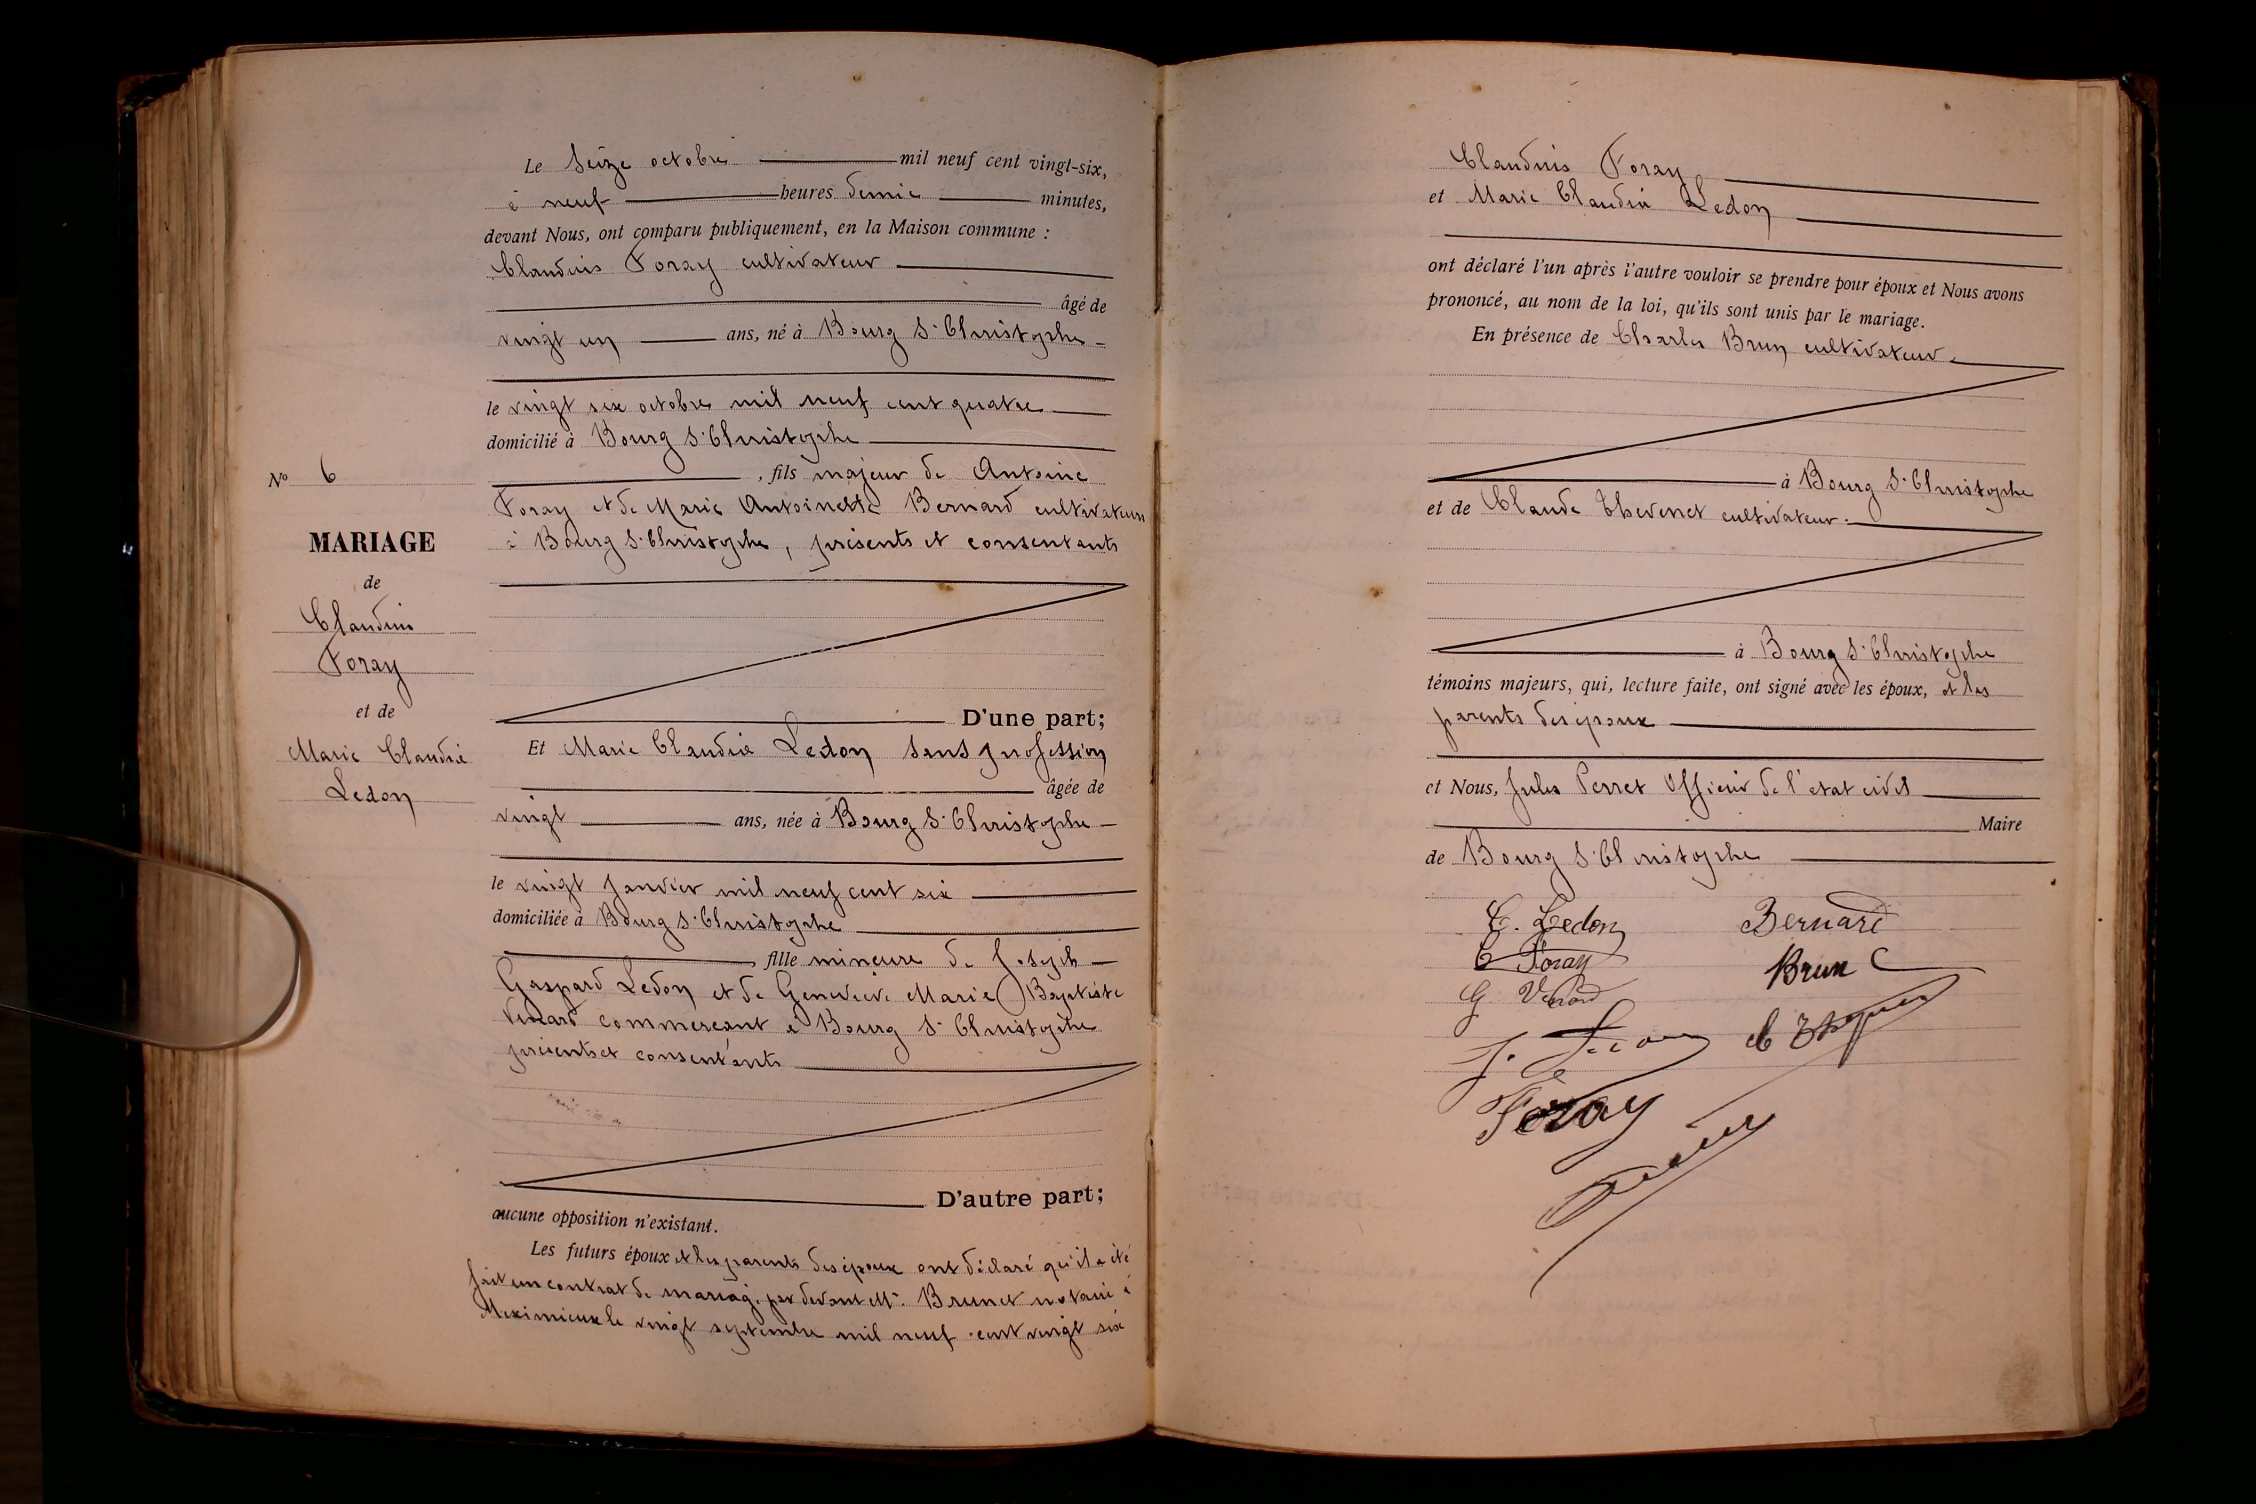 Le Seize octobre mil neuf cent vingt-six,
à neuf heures demie minutes,
devant Nous, ont comparu publiquement, en la Maison commune :
Claudius Foray cultivateur
âgé de
vingt un ans, né à Bourg St Christophe
le vingt six octobre mil neuf cent quatre
domicilié à Bourg St Christophe
No 6
, fils majeur de Antoine
Foray et de Marie Antoinette Bernard cultivateurs
à Bourg St Christophe, présents et consentants
MARIAGE
de
Claudius
Foray
et de
Marie Claudia
Ledon
D'une part;
Et Marie Claudia Ledon sans profession
âgée de
vingt ans, née à Bourg St Christophe
le vingt janvier mil neuf cent six
domiciliée à Bourg St Christophe
fille mineure de Joseph
Gaspard Ledon et de Geneviève Marie Baptiste
commerçant à Bourg St Christophe
présents et consentants
D'autre part;
aucune opposition n'existant.
Les futurs époux et les parents des époux ont déclaré qu'il a été
fait un contrat de mariage par devant Me Brunet notaire à
Meximieux le vingt septembre mil neuf cent vingt six
Claudius Foray
et Marie Claudia Ledon
ont déclaré l'un après l'autre vouloir se prendre pour époux et Nous avons
prononcé, au nom de la loi, qu'ils sont unis par le mariage.
En présence de Charles Brun cultivateur
à Bourg St Christophe
et de Claude Thevenet cultivateur
à Bourg St Christophe
témoins majeurs, qui, lecture faite, ont signé avec les époux, et les
parents des époux
et Nous, Jules Perret Officier de l'etat civil
Maire
de Bourg St Christophe
C. Ledon Bernard
C Foray Brun C
G
Foray